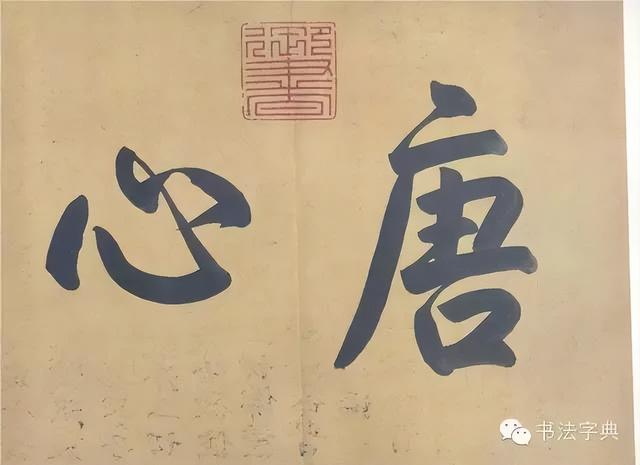 唐心
书法字典